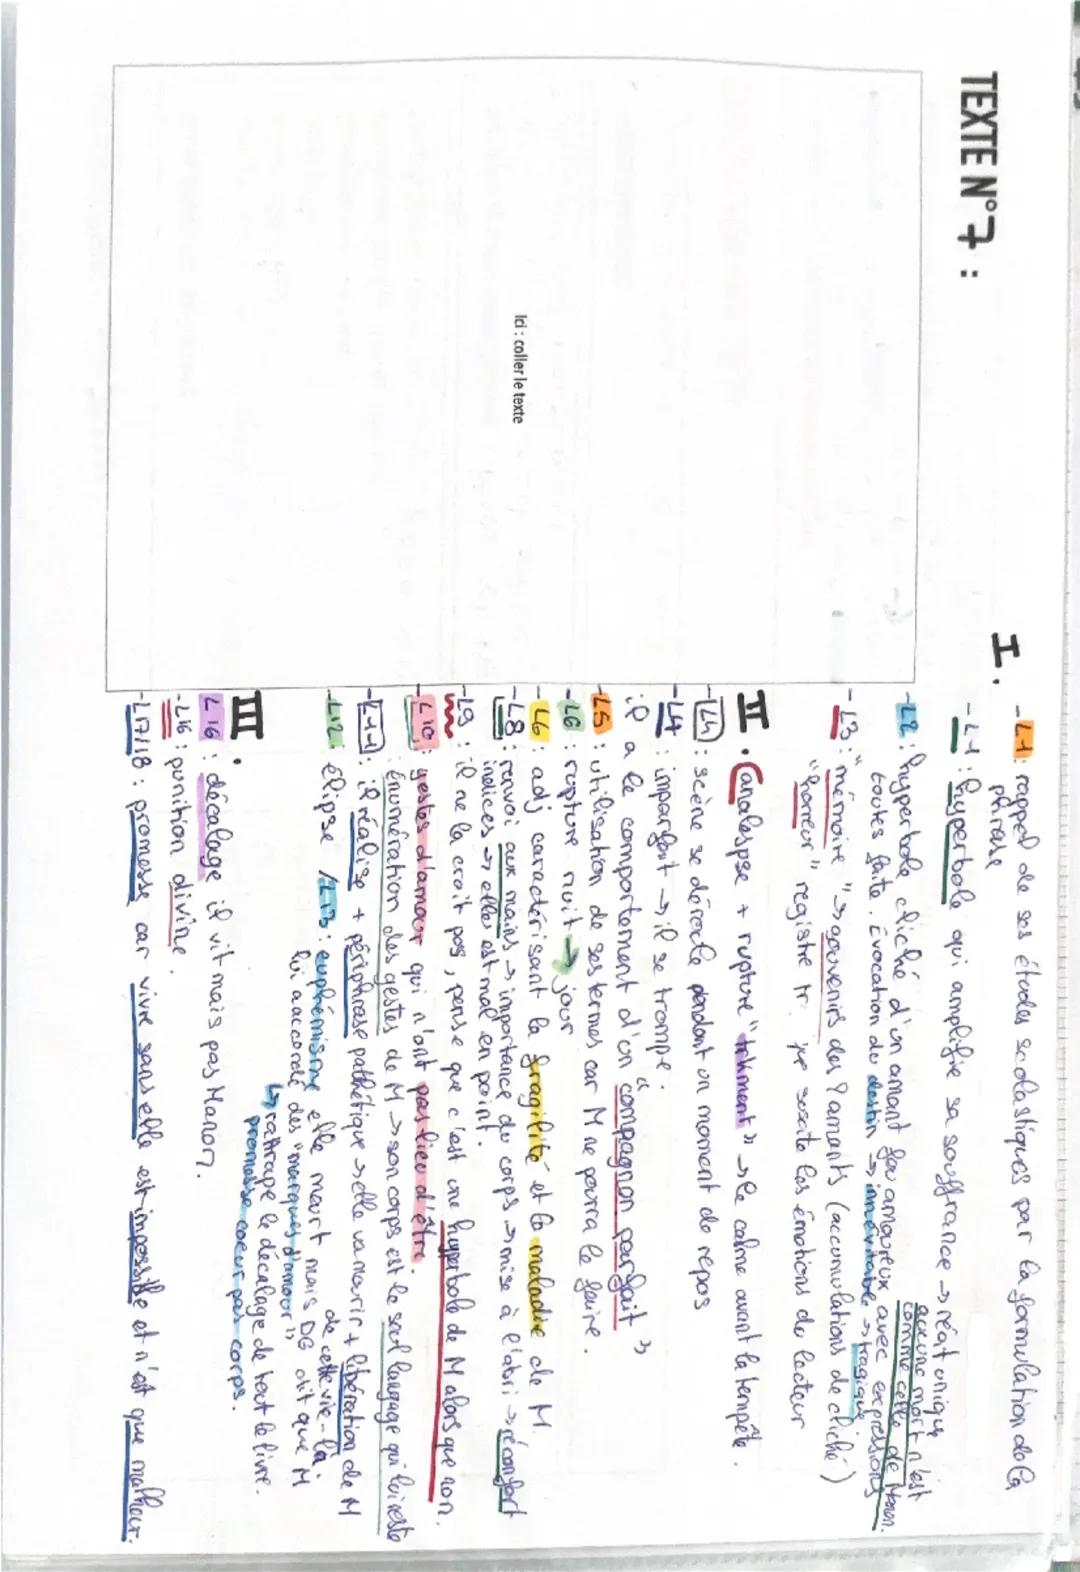 TEXTE N°7 :
Ici : coller le texte
I.
- L1: rappel de ses études scolastiques par la formulation de la
phrase
- L1 : hyperbole qui amplifie sa souffrance → récit unique
aucune mort n'est
comme celle de Manon.
- L2 : hyperbole cliché d'un amant fou amoureux avec expressions
toutes faite. Évocation du destin → inévitable → tragique
- L3 : "mémoire" → souvenirs des 2 amants (accumulations de cliché)
"horreur" registre tr. suscite les émotions du lecteur
II. analespse + rupture → le calme avant la tempête.
- L4 : scène se déroule pendant un moment de repos
- L4 : imparfait → il se trompe.
il a le comportement d'un "compagnon parfait"
- L5 : utilisation de ses termes car M ne pourra le faire.
- L6 : rupture nuit → jour
- L6 : adj caractérisant la fragilité et la maladie de M.
- L8 : renvoi aux mains → importance du corps → mise à l'abri → réconfort
indices → elle est mal en point.
- L9 : il ne la croit pas, pense que c'est une hyperbole de M alors que non.
- L10 : gestes d'amour qui n'ont pas lieu d'être.
: énumération des gestes de M → son corps est le seul langage qui lui reste
- L11 : il réalise + périphrase pathétique → elle va mourir + libération de M
de cette vie-là.
- L12 : élipse / L13 : euphémisme elle meurt mais DG dit que M
lui a accordé des "marques d'amour"
↳ rattrape le décalage de tout le livre.
promesse coeur pas corps.
III.
L16 : décalage il vit mais pas Manon.
- L16 : punition divine.
- L17/18 : promesse car vivre sans elle est impossible et n'est que malheur.